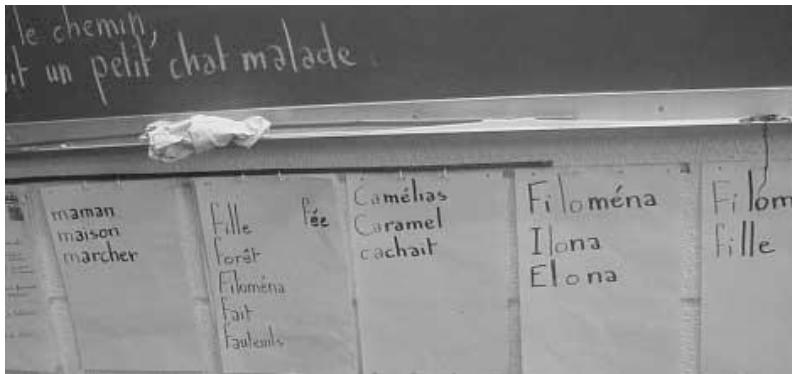 le chemin,
un petit chat malade
maman
maison
marcher
fille fée
forêt
Filoména
fait
fauteuils
Camélias
Caramel
cachait
Filoména
Ilona
Elona
Filom
fille